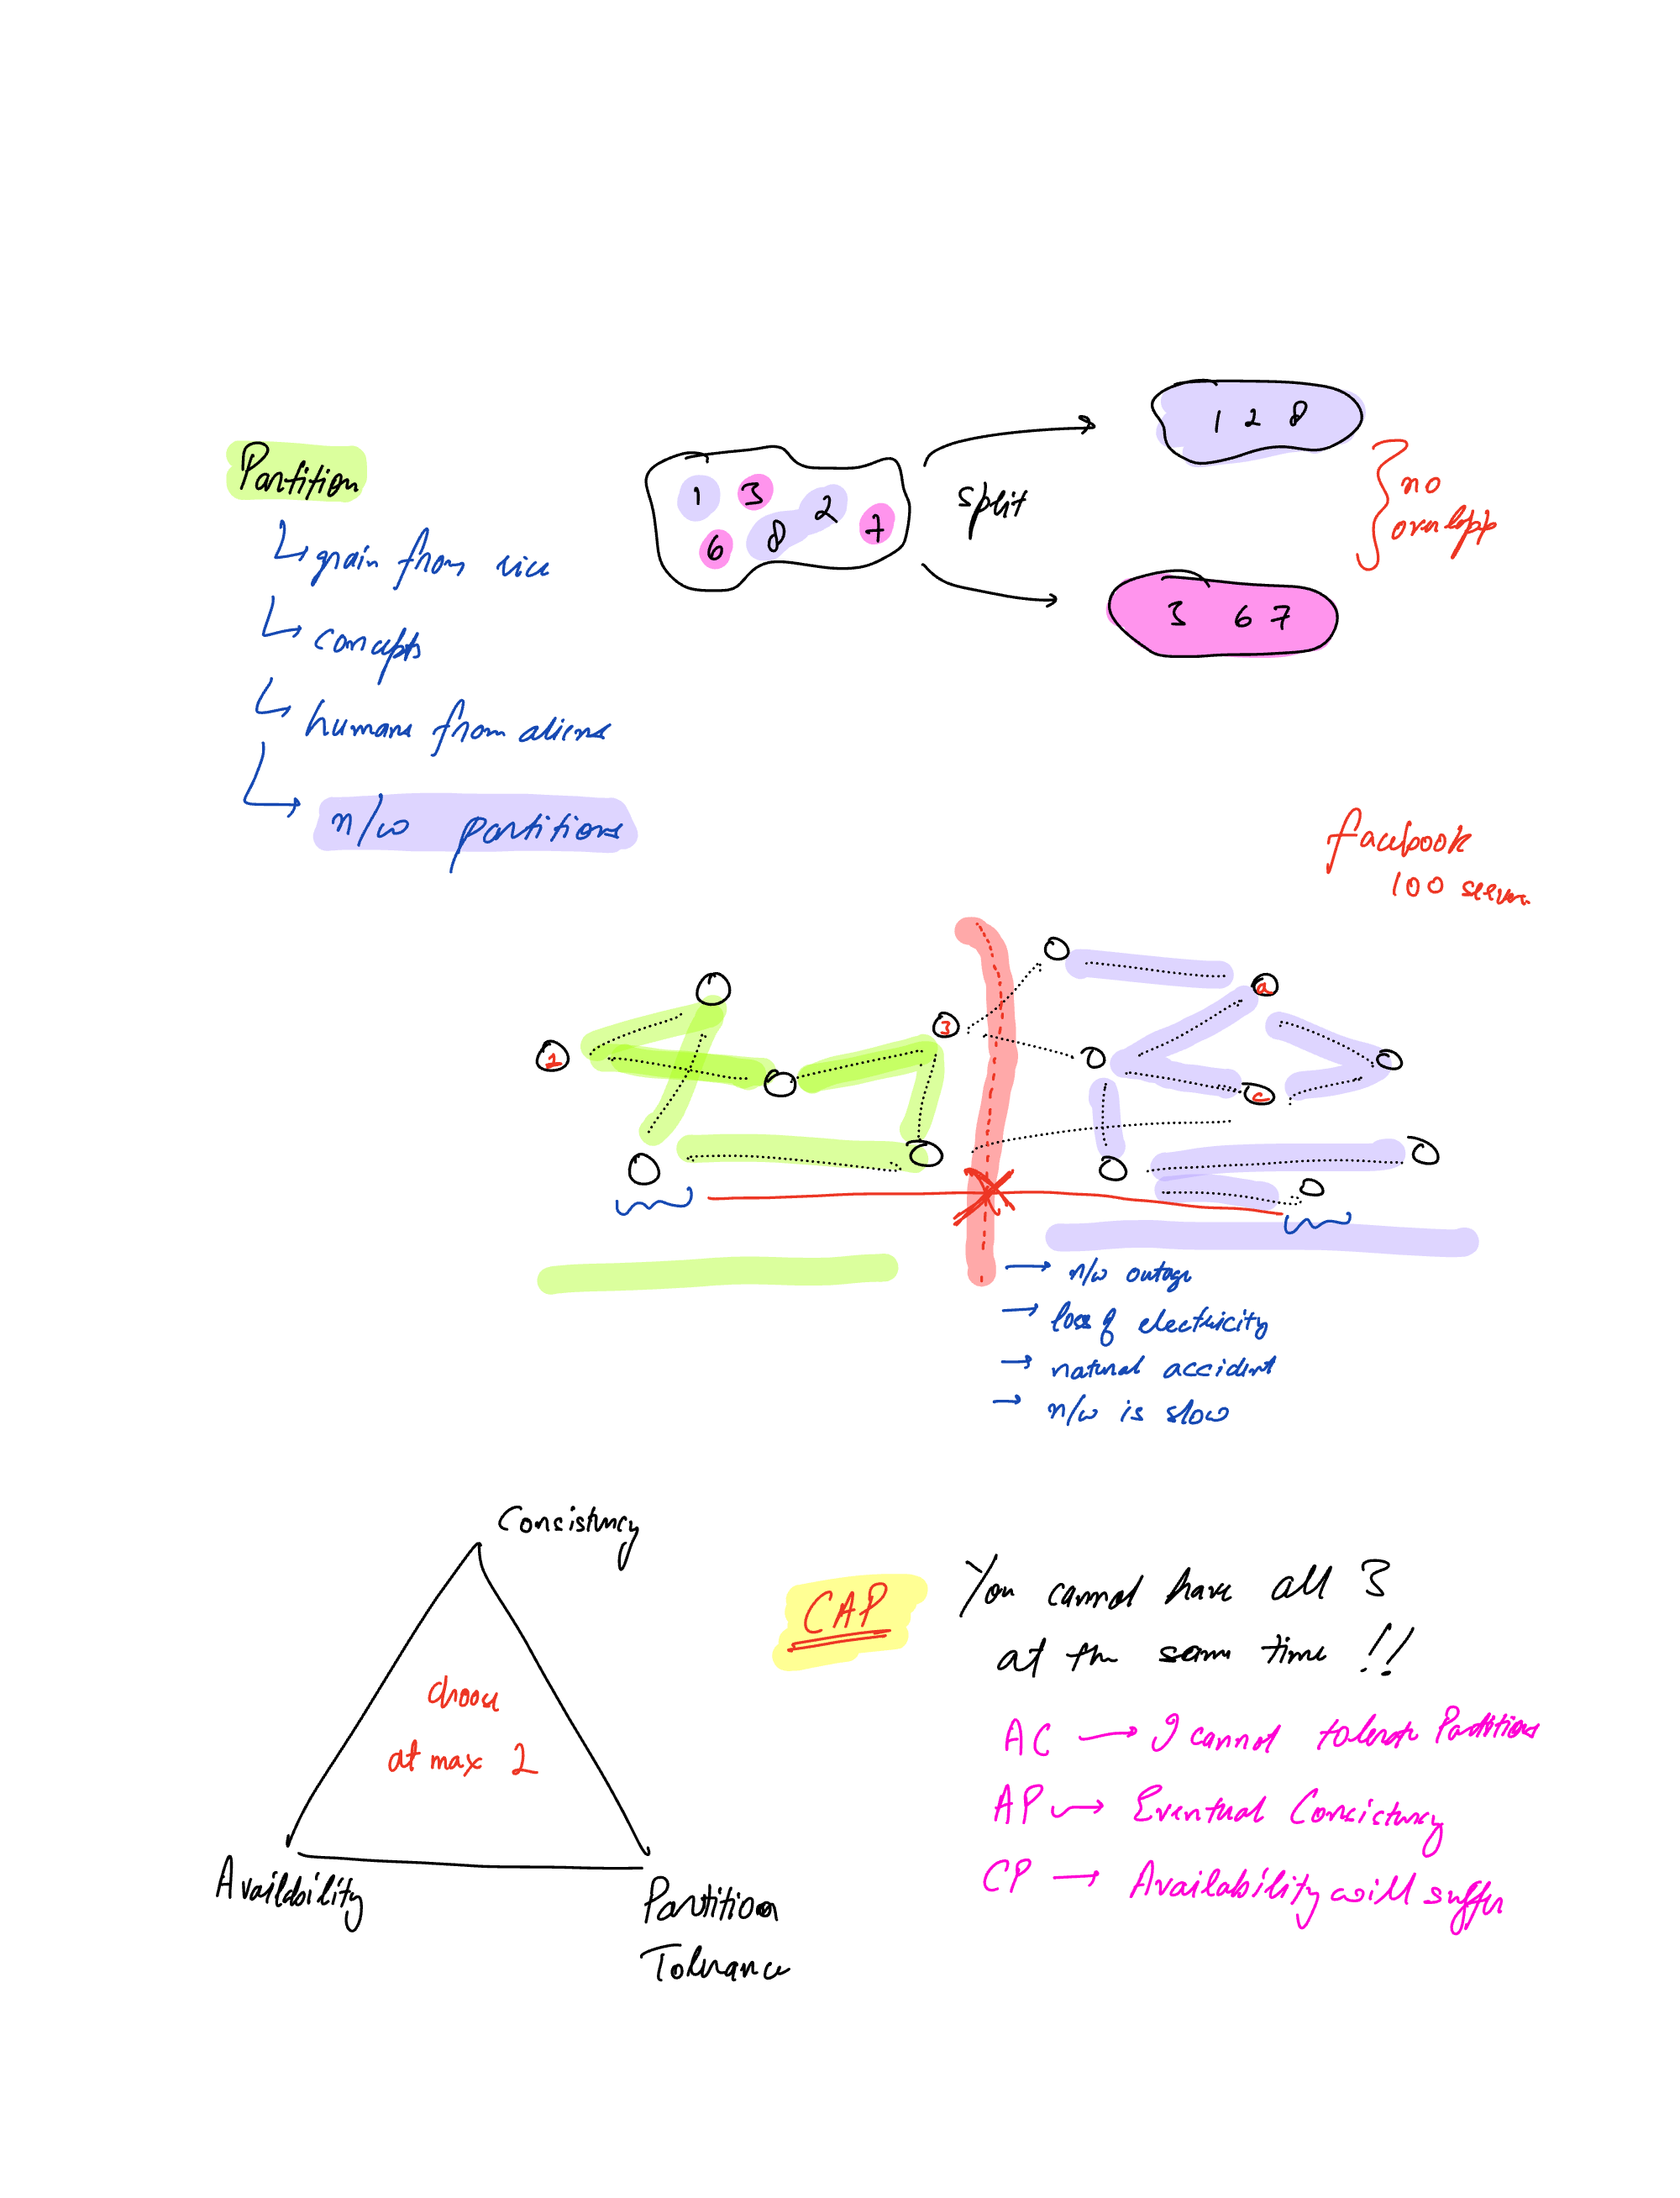 Partition
grain from rice
concepts
humans from aliens
n/w partitions
1 3
6 8 2 7
split
1 2 8
3 6 7
no
overlapp
facebook
100 servers
1
3
a
c
n/w outage
loss of electricity
natural accident
n/w is slow
Consistency
choose
at max 2
Availability
Partition
Tolerance
CAP
You cannot have all 3
at the same time !!
AC → I cannot tolerate Partitions
AP → Eventual Consistency
CP → Availability will suffer